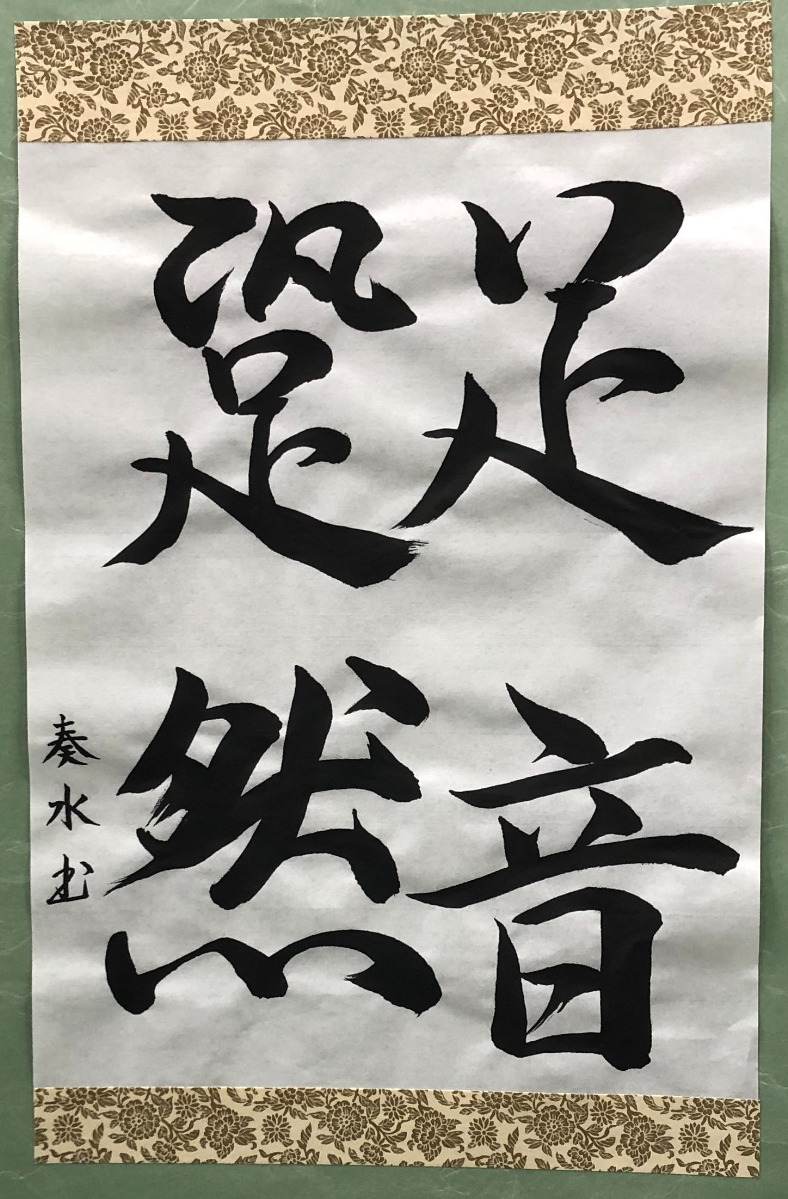 足音
跫然
奏水书